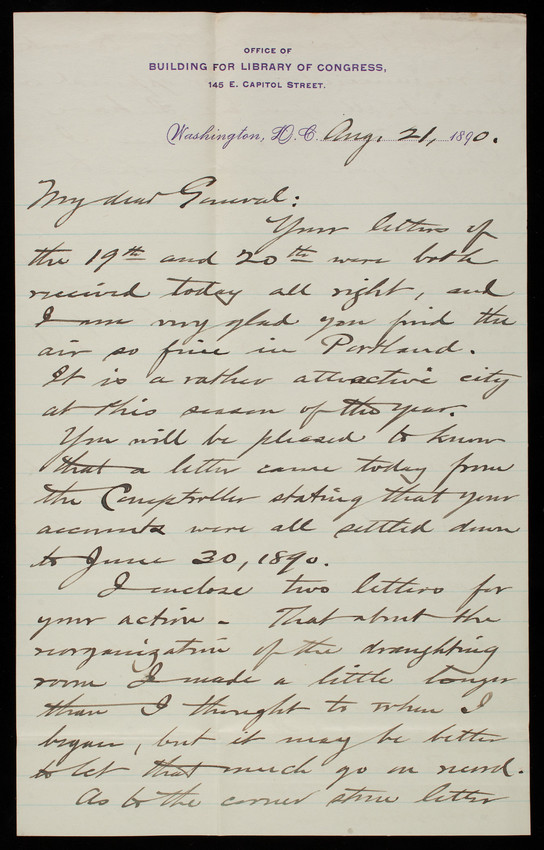 OFFICE OF
BUILDING FOR LIBRARY OF CONGRESS,
145 E. CAPITOL STREET.
Washington, D.C. Aug. 21, 1890.
My dear General:
Your letters of
the 19th and 20th were both
received today all right, and
I am very glad you find the
air so fine in Portland.
It is a rather attractive city
at this season of the year.
You will be pleased to know
that a letter came today from
the Comptroller stating that your
accounts were all settled down
to June 30, 1890.
I enclose two letters for
your action - That about the
reorganization of the draughting
room I made a little longer
than I thought to when I
began, but it may be better
to let that much go on record.
As to the corner stone letter